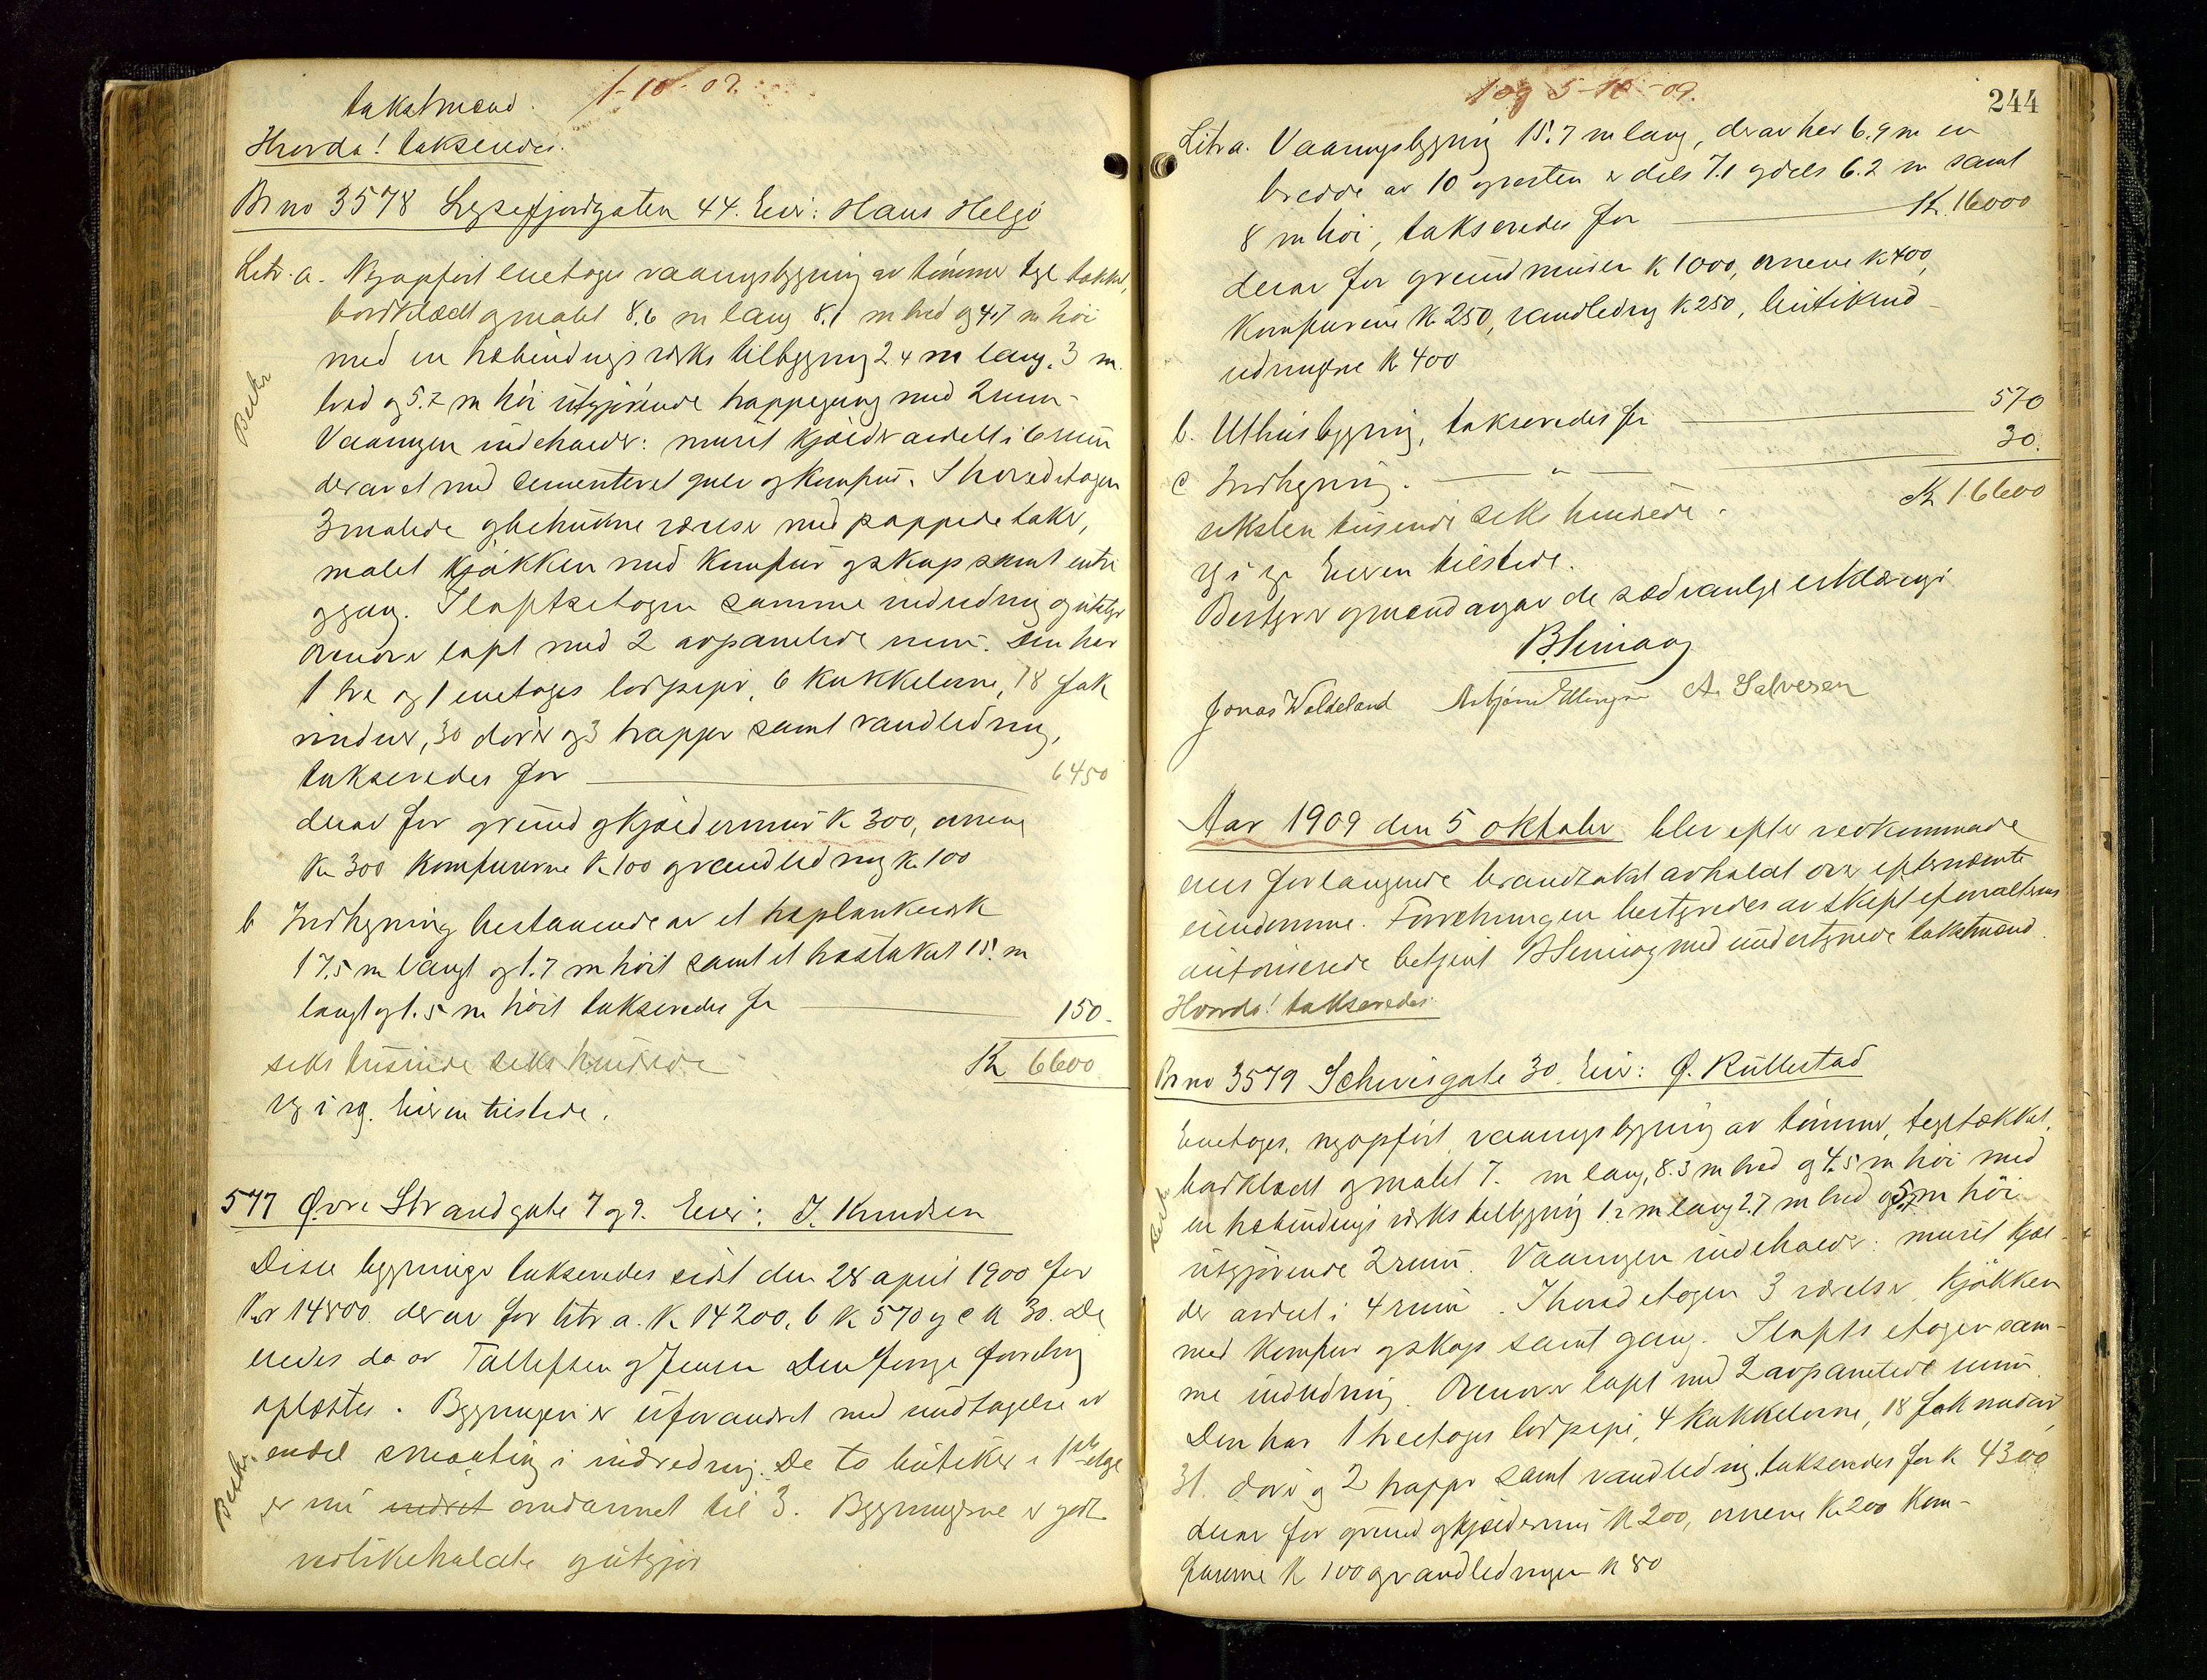 1-10-09.
takstmænd.
Hvorda! takseredes.
Br no 3578 Lysefjordgaten 44. Eier: Hans Helgø
Litr. a. Nyopført enetages vaaningsbygning av tømmer tegltækket,
bordklædt og malet 8.6 m lang 8.1 m bred og 4.7 m høi
med en træbindingsverks tilbygning 2.4 m lang, 3 m.
bred og 5.7 m høi utgjørende trappegang med 2 rum.
Beskr
Vaaningen indeholder: muret kjælder avdelt i 6 rum
derav et med cementeret gulv og komfur. I hovedetagen
3 malede og betrukne værelser med pappede taker,
malet kjøkken med komfur og skap samt entre
og gang. I loftsetagen samme indredning og utstyr
Ovenover loft med 2 avpanelede rum. Den har
1 tre og 1 enetages lodpipe, 6 kakkelovne, 18 fak
vinduer, 30 dører og 3 trapper samt vandledning,
takseredes for 6450
derav for grund og kjældermur K 300, ovnene
K 300 komfurerne K 100 og vandledning K. 100
b Indhegning bestaaende av et træplankeverk
17.5 m langt og 1.7 m høit samt et træstakit 15. m
langt og 1.5 m høit takseredes for 150.
seks tusinde seks hundrede K 6600
Eieren tilstede.
577 Øvre Strandgate 7 og 9. Eier: J. Knudsen
Disse bygninger takseredes sidst den 28 april 1900 for
Kr 14800. derav for litr a. K 14200, b K 570 og c K 30. De
eiedes da av Tallefsen og Jensen Den forrige forretning
oplæstes. Bygningen er uforandret med undtagelse av
Beskr.
endel smaating i indredning. De to butiker i 1ste etage
er nu indret omdannet til 3. Bygningerne er godt
vedlikeholdte og utgjør
1 og 5-10-09.
244
Litr a. Vaaningsbygning 15.7 m lang, derav her 6.9 m en
bredde av 10 og resten er dels 7.1 og dels 6.2 m samt
8 m høi, takseredes for K. 16000
derav for grundmuren K 1000, ovnene K 400,
komfurene K 250, vandledning K 250, butikind-
redningene K 400
b. Uthusbygning, takseredes for 570
c Indhegning. " 30.
seksten tusinde seks hundrede. K 16600
Eieren tilstede.
Bestyrer og mænd avgav de sædvanlige erklæringer
Jonas Waldeland Asbjørn Ellingsen A. Salvesen
Aar 1909 den 5 oktober blev efter vedkommende
eiers forlangende brandtakst avholdt over efternævnte
eiendomme. Forretningen bestyredes av skifteforvalterens
autoriserede betjent med undertegnede takstmænd.
Hvorda! takseredes.
Br no 3579 Schivesgate 30. Eier: Ø. Rullestad
Enetages, nyopført vaaningsbygning av tømmer, tegltækket,
bordklædt og malet 7. m lang, 8.3 m bred og 4.5 m høi med
Beskr
en træbindingsverks tilbygning 1.2 m lang 2.7 m bred og 5.7 m høi
utgjørende 2 rum. Vaaningen indeholder: muret kjæl-
der avdelt i 4 rum. I hovedetagen 3 værelser, kjøkken
med komfur og skap samt gang. I loftsetagen sam-
me indredning. Ovenover loft med 2 avpanelede rum
Den har 1 treetages lodpipe, 4 kakkelovne, 18 fak vinduer,
31. dører og 2 trapper samt vandledning, takseredes for K 4300
derav for grund og kjældermur K 200, ovnene K. 200 kom-
furerne K 100 og vandledningen K 80